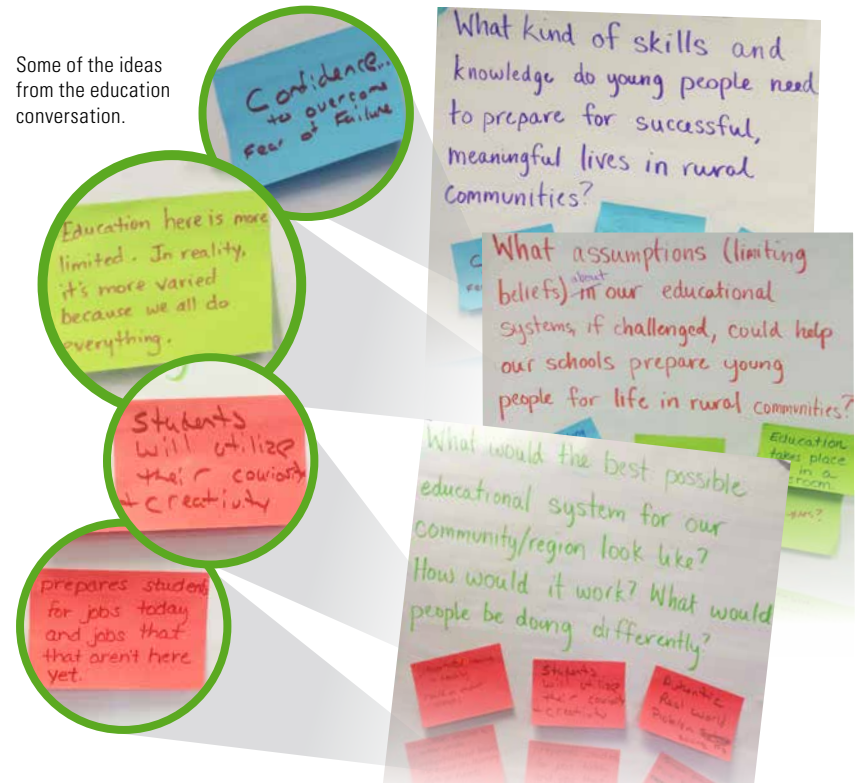 Some of the ideas
from the education
conversation.
Confidence..
to overcome
Fear of Failure
Education here is more
limited. In reality,
it's more varied
because we all do
everything.
Students
will utilize
their couriosity
+ creativity
prepares students
for jobs today
and jobs that
that aren't here
yet.
What kind of skills and
knowledge do young people need
to prepare for successful,
meaningful lives in rural
communities?
C
What assumptions (limiting
about
beliefs) in our educational
systems, if challenged, could help
our schools prepare young
people for life in rural communities?
Education
takes place
in a
room
What would the best possible
educational system for our
community/region look like?
How would it work? What would
people be doing differently?
Students
will utilize
their couriosity
+ creativity
Authentic
Real World
Problem